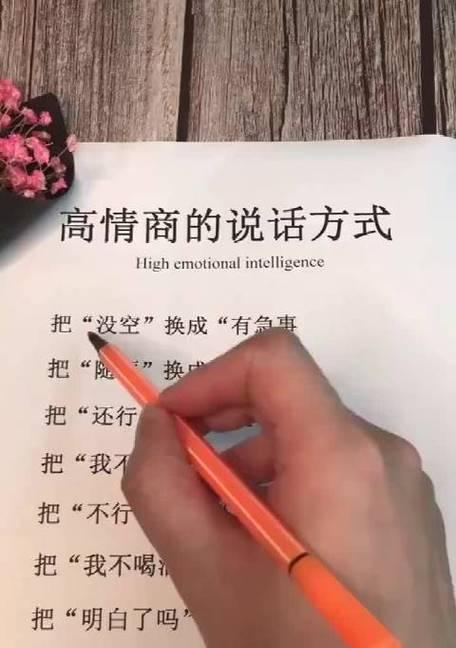 高情商的说话方式
High emotional intelligence
把“没空”换成“有急事
把“随便”换成
把“还行
把“我不
把“不行
把“我不喝酒
把“明白了吗”